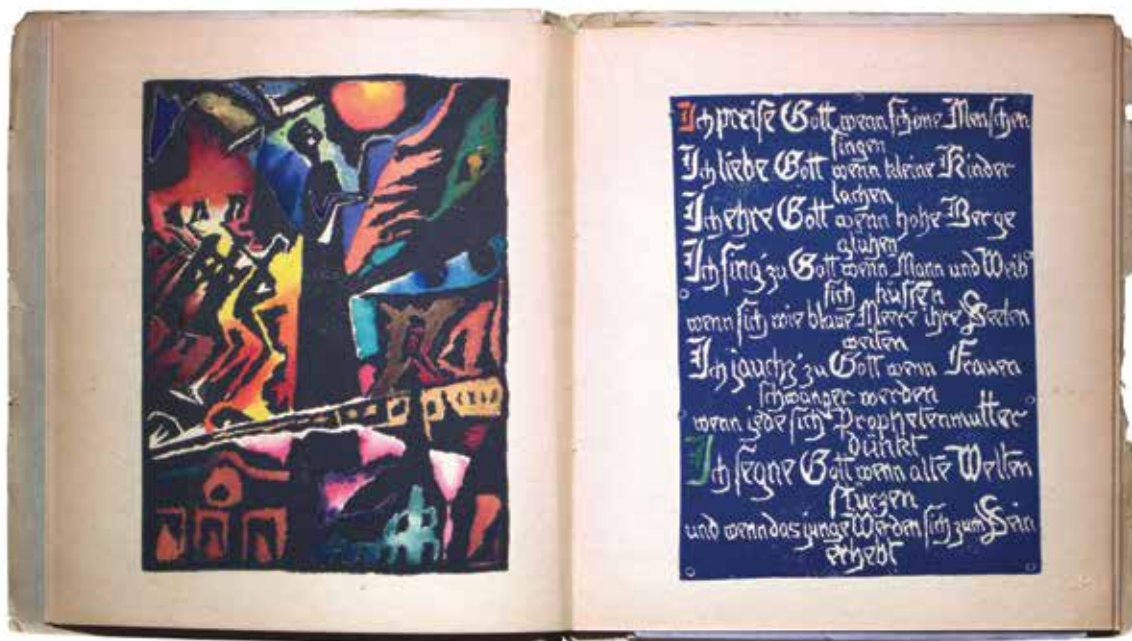 Ich preise Gott wenn schöne Menschen
singen
Ich liebe Gott wenn kleine Kinder
lachen
Ich ehre Gott wenn hohe Berge
glühen
Ich sing' zu Gott wenn Mann und Weib
sich küssen
wenn sich wie blaue Meere ihre Seelen
weiten
Ich jauchz' zu Gott wenn Frauen
schwanger werden
wenn jede sich Prophetenmutter
dünkt
Ich segne Gott wenn alte Welten
stürzen
und wenn das junge Werden sich zum Sein
erhebt